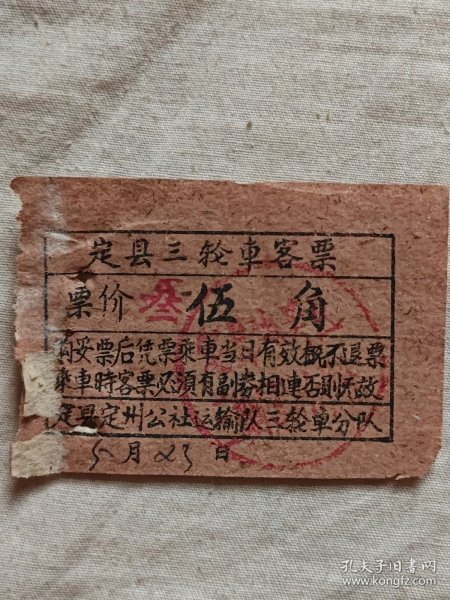 定县三轮車客票
票价 叁 伍 角
购妥票后凭票乘車当日有效概不退票
乘車時客票必須有副券相連否則作故
定县定州公社运输队三轮单分队
5月23日
孔夫子旧书网
www.kongfz.com